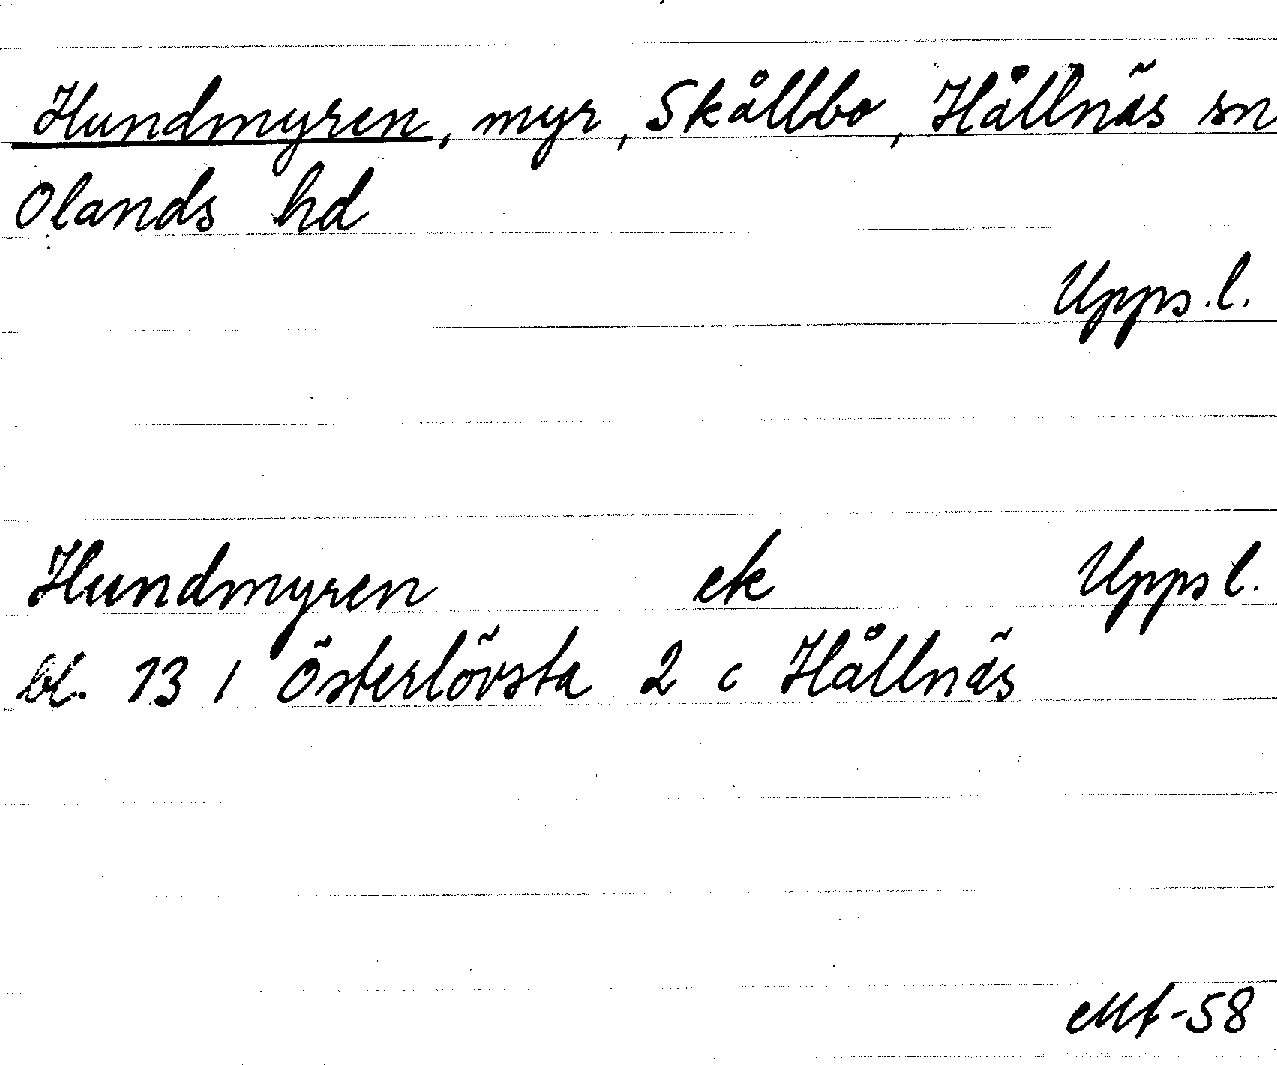 Hundmyren, myr, Skållbo, Hållnäs sn
Olands hd
Upps.l.
Hundmyren ek Upps l.
bl. 13 I Österlövsta 2 c Hållnäs
Mf-58